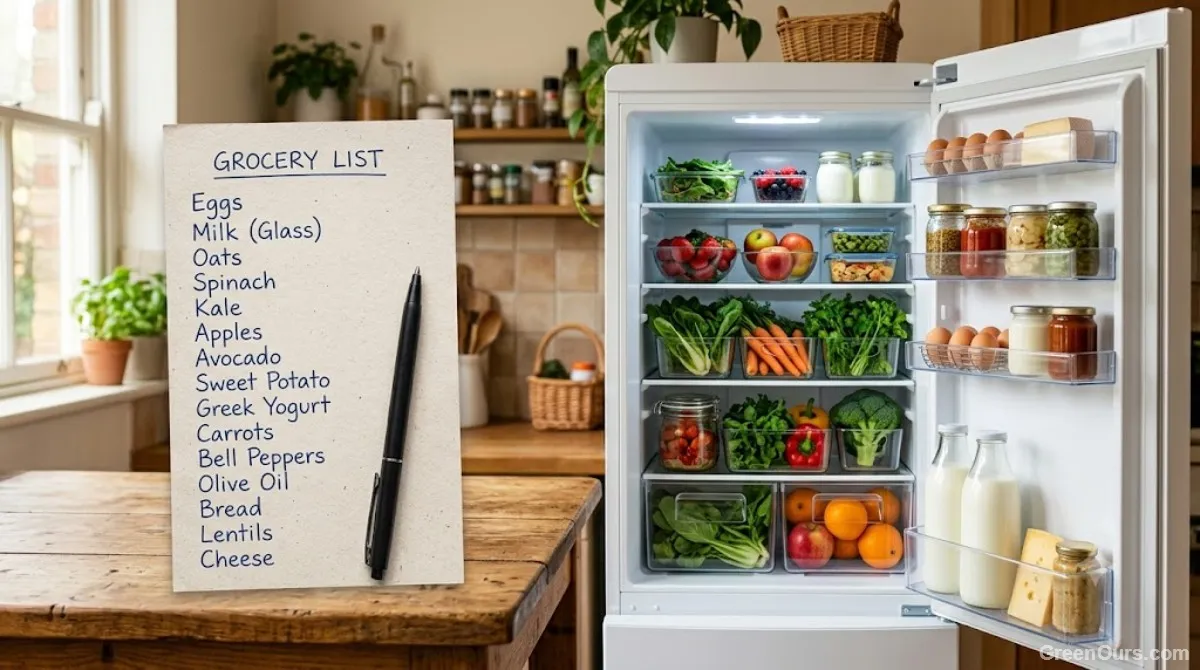 GROCERY LIST
Eggs
Milk (Glass)
Oats
Spinach
Kale
Apples
Avocado
Sweet Potato
Greek Yogurt
Carrots
Bell Peppers
Olive Oil
Bread
Lentils
Cheese
GreenOurs.com